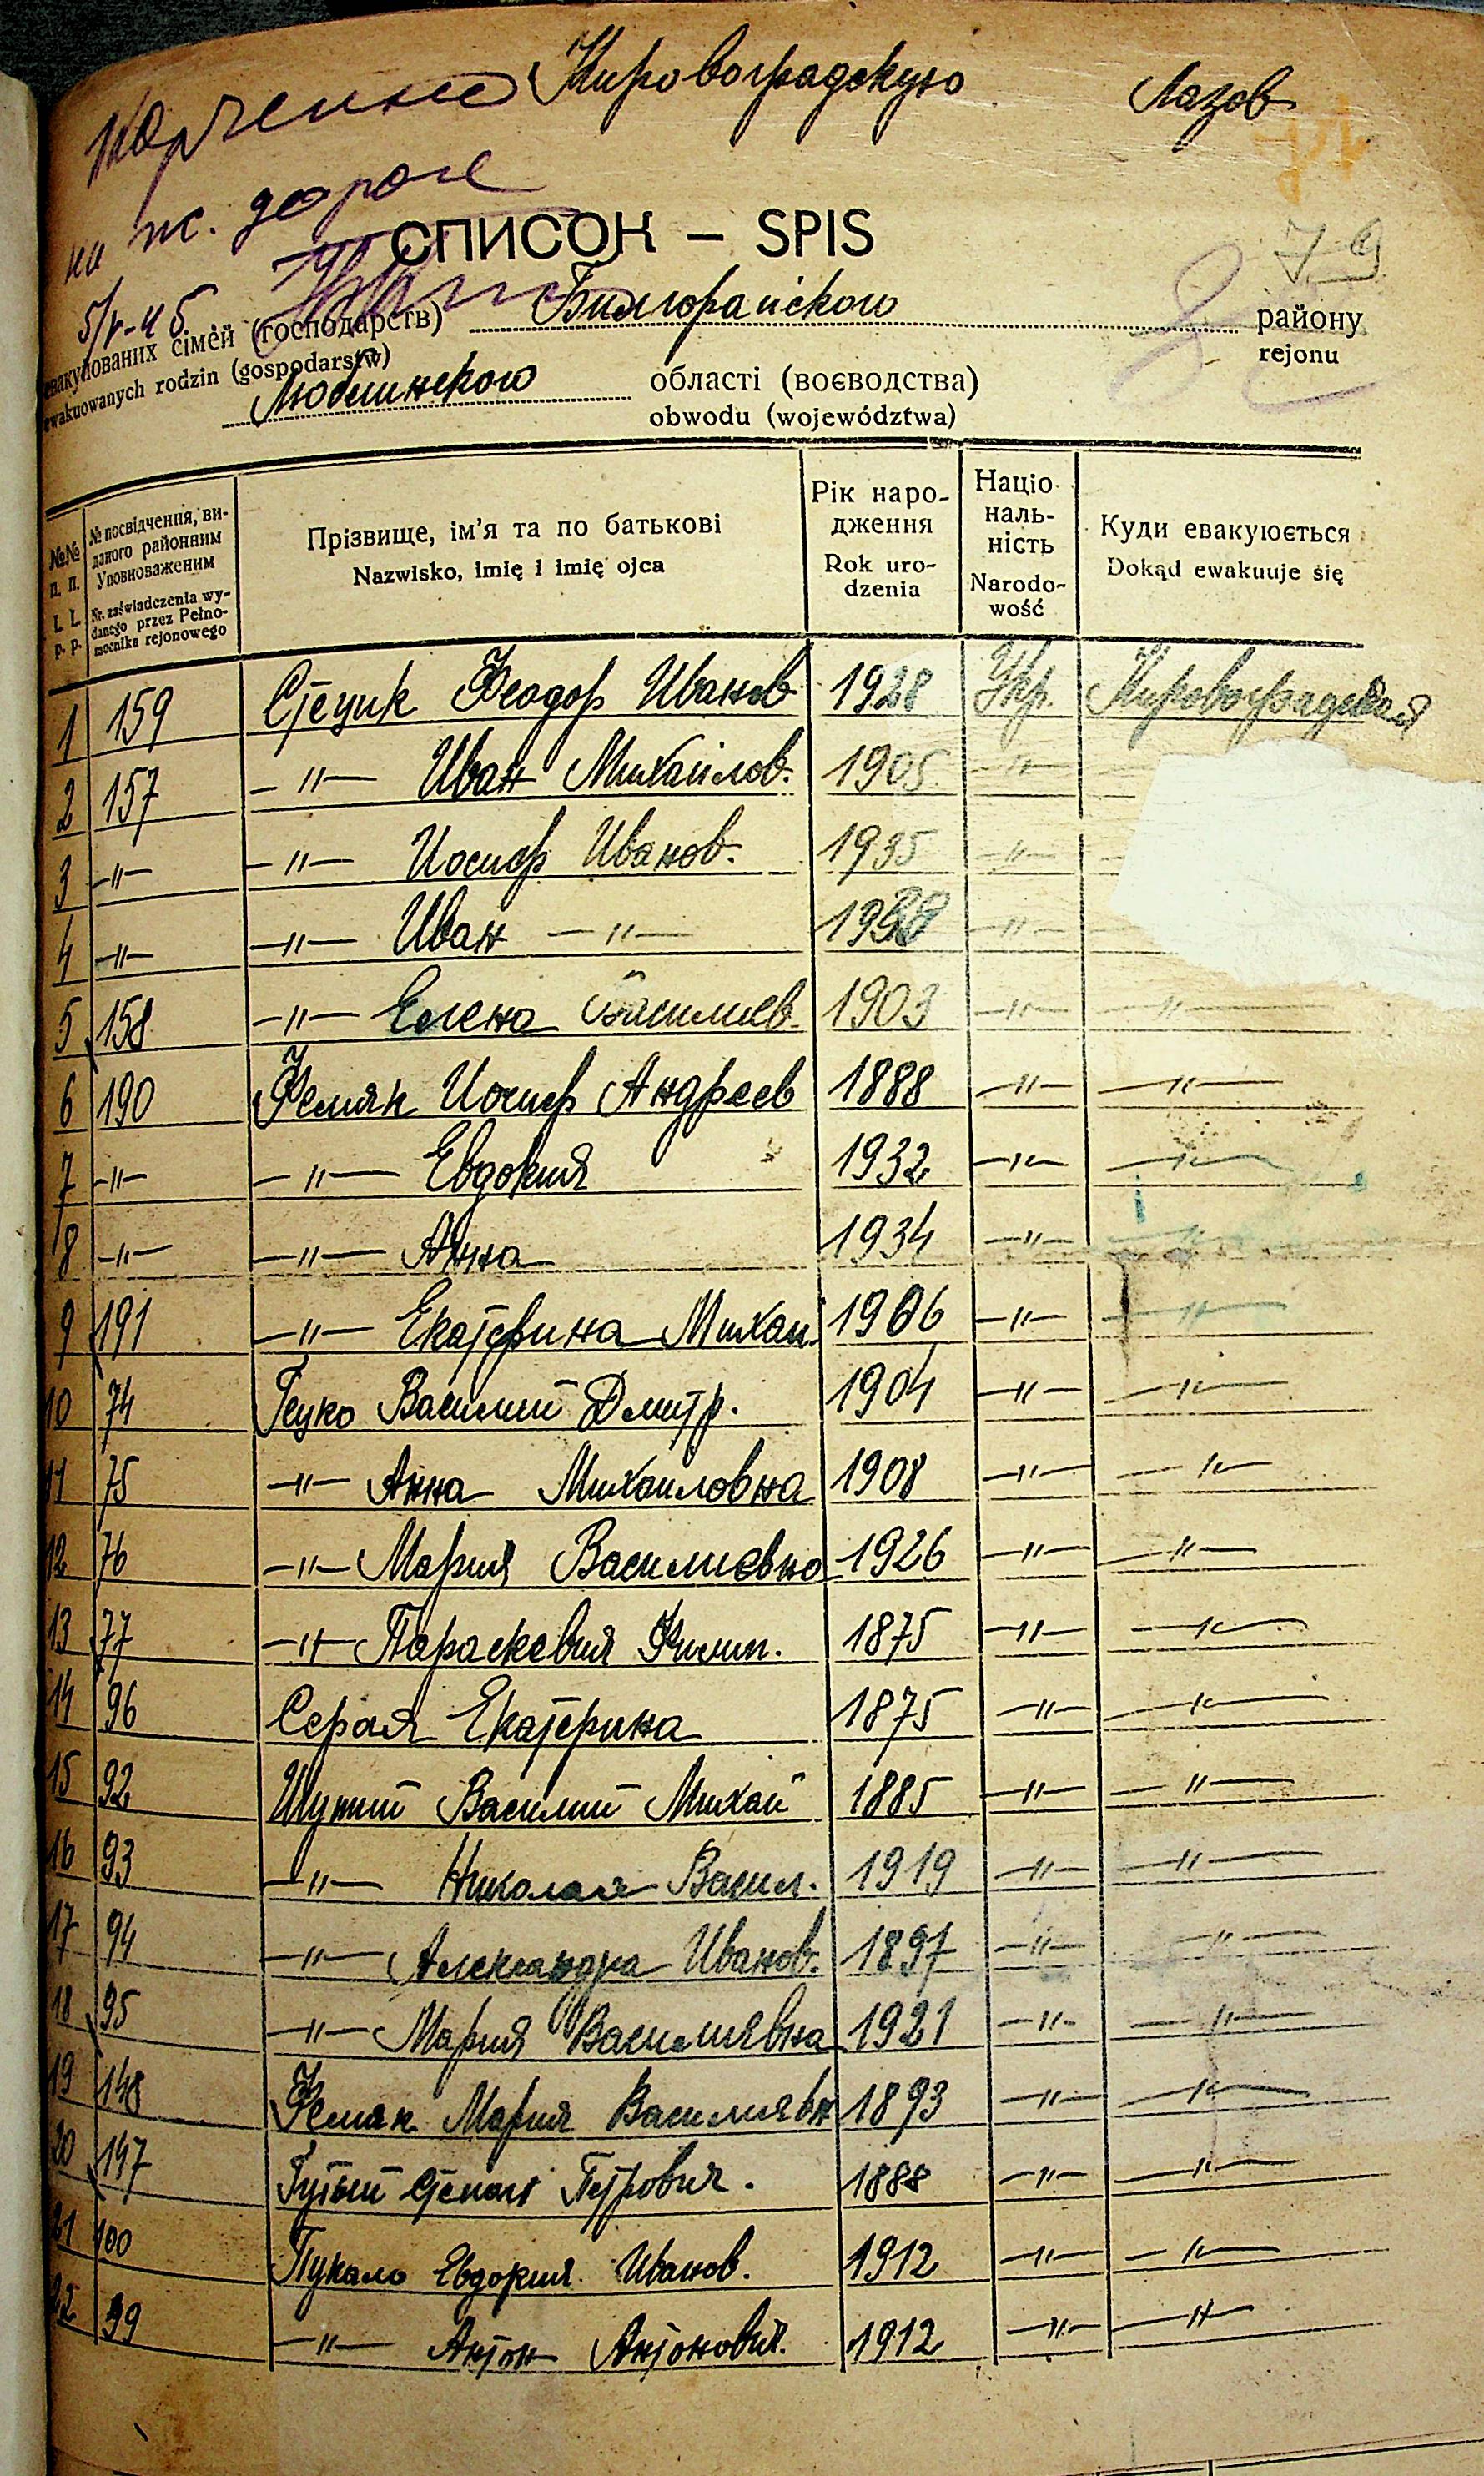 Кировоградскую Лазов
на ж. дороге
79
СПИСОК – SPIS
5/V-45
евакуйованих сімей (господарств) Билгорайского району
ewakuowanych rodzin (gospodarstw) rejonu
Люблинского області (воєводства)
obwodu (województwa)
№№ п. п. L. L. p. p.
№ посвідчення, виданого районним Уповноваженим
Nr. zaświadczenia wydanego przez Pełnomocnika rejonowego
Прізвище, ім'я та по батькові
Nazwisko, imię i imię ojca
Рік народження
Rok urodzenia
Національність
Narodowość
Куди евакуюється
Dokąd ewakuuje się
1 159 Стецик Феодор Иванов 1928 Укр. Кировоградская
2 157 -"- Иван Михайлов. 1905 -"-
3 -"- -"- Иосиф Иванов. 1935 -"-
4 -"- -"- Иван -"- 1938 -"-
5 158 -"- Елена Василиев. 1903 -"- -"-
6 190 Фемяк Иосиф Андреев 1888 -"- -"-
7 -"- -"- Евдокия 1932 -"- -"-
8 -"- -"- Анна 1934 -"- -"-
9 191 -"- Екатерина Михай. 1906 -"- -"-
10 74 Гецко Василий Дмитр. 1904 -"- -"-
11 75 -"- Анна Михаиловна 1908 -"- -"-
12 76 -"- Мария Василиевна 1926 -"- -"-
13 77 -"- Параскевия Филип. 1875 -"- -"-
14 96 Серая Екатерина 1875 -"- -"-
15 92 Шутий Василий Михай 1885 -"- -"-
16 93 -"- Николая Васил. 1919 -"- -"-
17 94 -"- Александра Иванов. 1897 -"- -"-
18 95 -"- Мария Василиявна 1921 -"- -"-
19 148 Фемяк Мария Василиявн 1893 -"- -"-
20 147 Гутый Степан Петрович. 1888 -"- -"-
21 100 Пукало Евдокия Иванов. 1912 -"- -"-
22 99 -"- Антон Антонович. 1912 -"- -"-